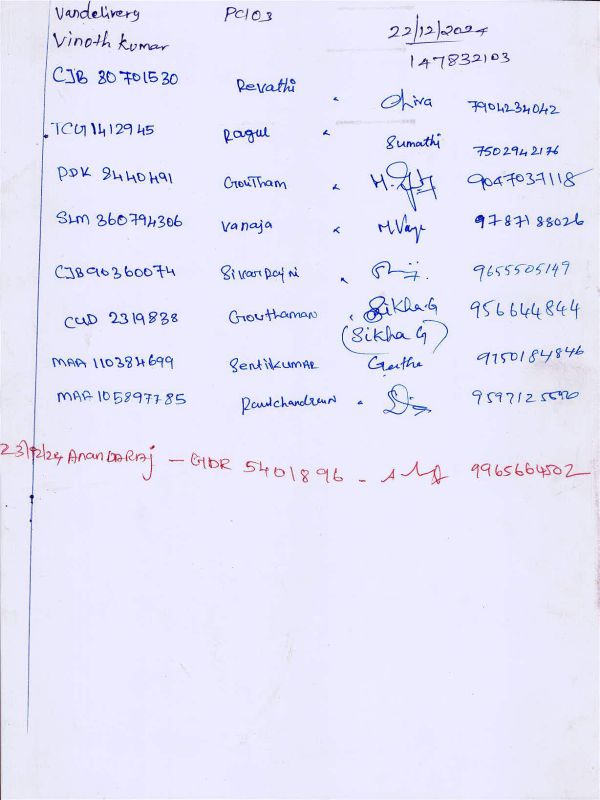 Vandelivery PC103 22/12/2024
Vinoth kumar 147832103
CJB 80701530 Revathi " Shiva 7904234042
TCG1412945 Ragul " Sumathi 7502942176
PDK 8440491 Goutham " 9047037118
SLM 360794306 Vanaja " 9787188026
CJB90360074 " 9655505149
CUD 2319838 Gouthaman " Sikha G 956644844
(Sikha G)
MAA 110384699 Sentilkumar Geetha 9150184846
MAA 105897785 Ramchandran "
23/12/24 AnandaRaj - GDR 5401896 - 9965664502